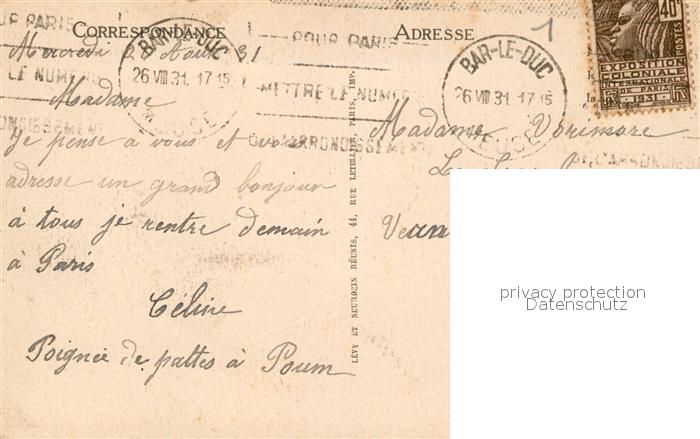 CORRESPONDANCE
ADRESSE
1
POUR PARIS
METTRE LE NUMERO
D'ARRONDISSEMENT
BAR-LE-DUC
26 VIII 31. 17 15
MEUSE
BAR-LE-DUC
26 VIII 31. 17 15
MEUSE
40c
EXPOSITION
COLONIALE
INTERNATIONALE
DE PARIS
1931
Mercredi 26 Août 31
Madame
Je pense à vous et vous
adresse un grand bonjour
à tous je rentre demain
à Paris
Céline
Poignée de pattes à Poum
LÉVY ET NEURDEIN RÉUNIS, 44, RUE LETELLIER, PARIS, IMP.
Madame Vorimore
privacy protection
Datenschutz